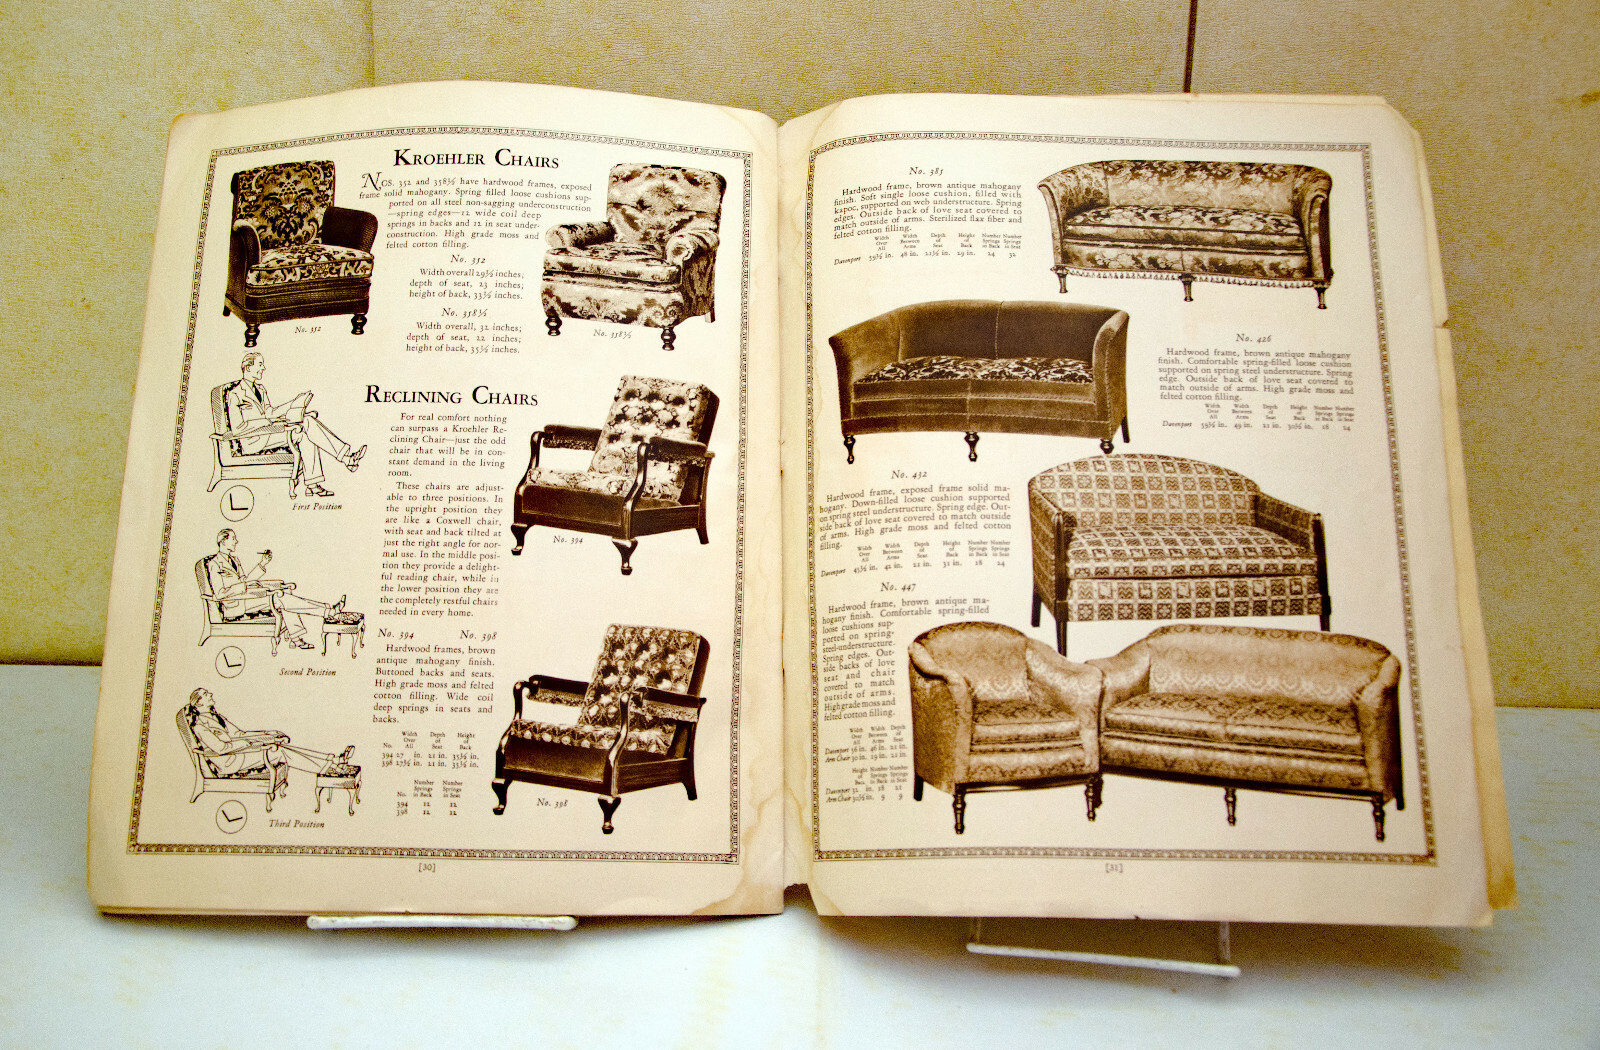 KROEHLER CHAIRS
NOS. 352 and 358½ have hardwood frames, exposed
frame solid mahogany. Spring filled loose cushions sup-
ported on all steel non-sagging underconstruction
—spring edges—12 wide coil deep
springs in backs and 12 in seat under-
construction. High grade moss and
felted cotton filling.
No. 352
Width overall 29½ inches;
depth of seat, 23 inches;
height of back, 33½ inches.
No. 358½
Width overall, 32 inches;
depth of seat, 22 inches;
height of back, 35½ inches.
No. 352
No. 358½
RECLINING CHAIRS
For real comfort nothing
can surpass a Kroehler Re-
clining Chair—just the odd
chair that will be in con-
stant demand in the living
room.
These chairs are adjust-
able to three positions. In
the upright position they
are like a Coxwell chair,
with seat and back tilted at
just the right angle for nor-
mal use. In the middle posi-
tion they provide a delight-
ful reading chair, while in
the lower position they are
the completely restful chairs
needed in every home.
First Position
Second Position
Third Position
No. 394
No. 394 No. 398
Hardwood frames, brown
antique mahogany finish.
Buttoned backs and seats.
High grade moss and felted
cotton filling. Wide coil
deep springs in seats and
backs.
Width Depth Height
Over of of
No. All Seat Back
394 27 in. 21 in. 35½ in.
398 27½ in. 21 in. 35½ in.
Number Number
Springs Springs
No. in Back in Seat
394 12 12
398 12 12
No. 398
[30]
No. 385
Hardwood frame, brown antique mahogany
finish. Soft single loose cushion, filled with
kapoc, supported on web understructure. Spring
edges. Outside back of love seat covered to
match outside of arms. Sterilized flax fiber and
felted cotton filling.
Width Width Depth Height Number Number
Over Between of of Springs Springs
All Arms Seat Back in Back in Seat
Davenport 59½ in. 48 in. 21½ in. 29 in. 24 32
No. 426
Hardwood frame, brown antique mahogany
finish. Comfortable spring-filled loose cushion
supported on spring steel understructure. Spring
edge. Outside back of love seat covered to
match outside of arms. High grade moss and
felted cotton filling.
Width Width Depth Height Number Number
Over Between of of Springs Springs
All Arms Seat Back in Back in Seat
Davenport 59½ in. 49 in. 21 in. 30½ in. 18 24
No. 432
Hardwood frame, exposed frame solid ma-
hogany. Down-filled loose cushion supported
on spring steel understructure. Spring edge. Out-
side back of love seat covered to match outside
of arms. High grade moss and felted cotton
filling.
Width Width Depth Height Number Number
Over Between of of Springs Springs
All Arms Seat Back in Back in Seat
Davenport 45½ in. 42 in. 22 in. 32 in. 18 24
No. 447
Hardwood frame, brown antique ma-
hogany finish. Comfortable spring-filled
loose cushions sup-
ported on spring-
steel-understructure.
Spring edges. Out-
side backs of love
seat and chair
covered to match
outside of arms.
High grade moss and
felted cotton filling.
Width Width Depth
Over Between of
All Arms Seat
Davenport 56 in. 46 in. 21 in.
Arm Chair 30 in. 19 in. 21 in.
Height Number Number
of Springs Springs
Back in Back in Seat
Davenport 32 in. 18 21
Arm Chair 30½ in. 9 9
[31]